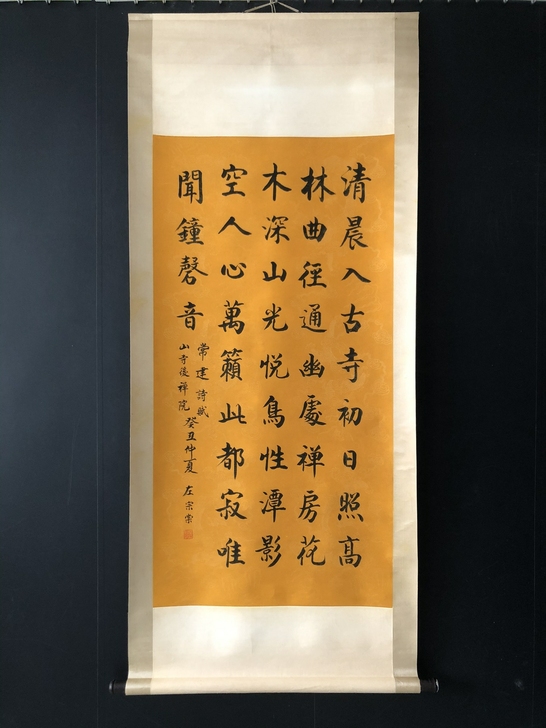 清晨入古寺初日照高
林曲径通幽處禅房花
木深山光悦鳥性潭影
空人心萬籟此都寂唯
聞鐘磬音
常建詩賦
山寺後禅院
癸丑仲夏
左宗棠